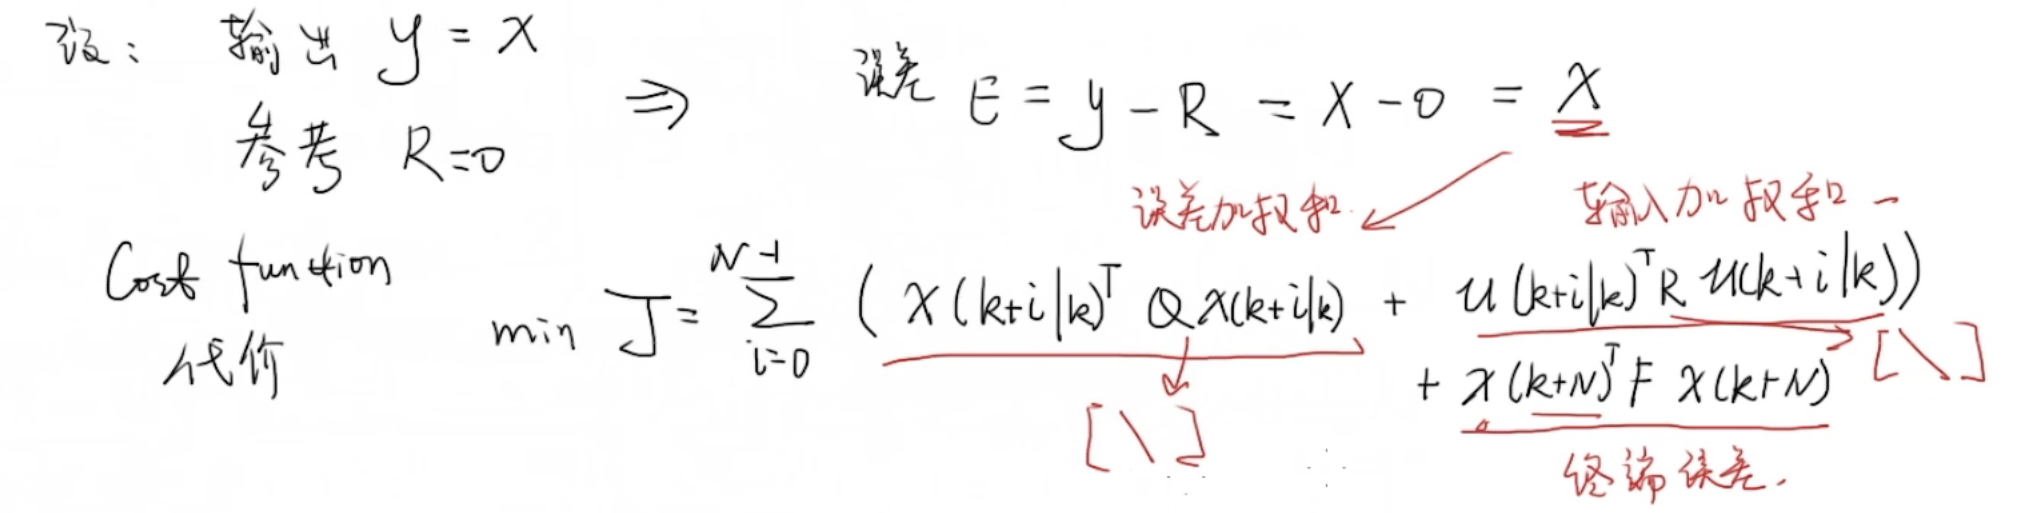 设： 输出 y = x
参考 R=0
⇒
误差 E = y - R = x - 0 = x
误差加权和
输入加权和
Cost function
代价
min J = N-1 ∑ i=0 ( x(k+i|k)ᵀ Q x(k+i|k) + u(k+i|k)ᵀ R u(k+i|k))
[\]
+ x(k+N)ᵀ F x(k+N)
[\]
终端误差.